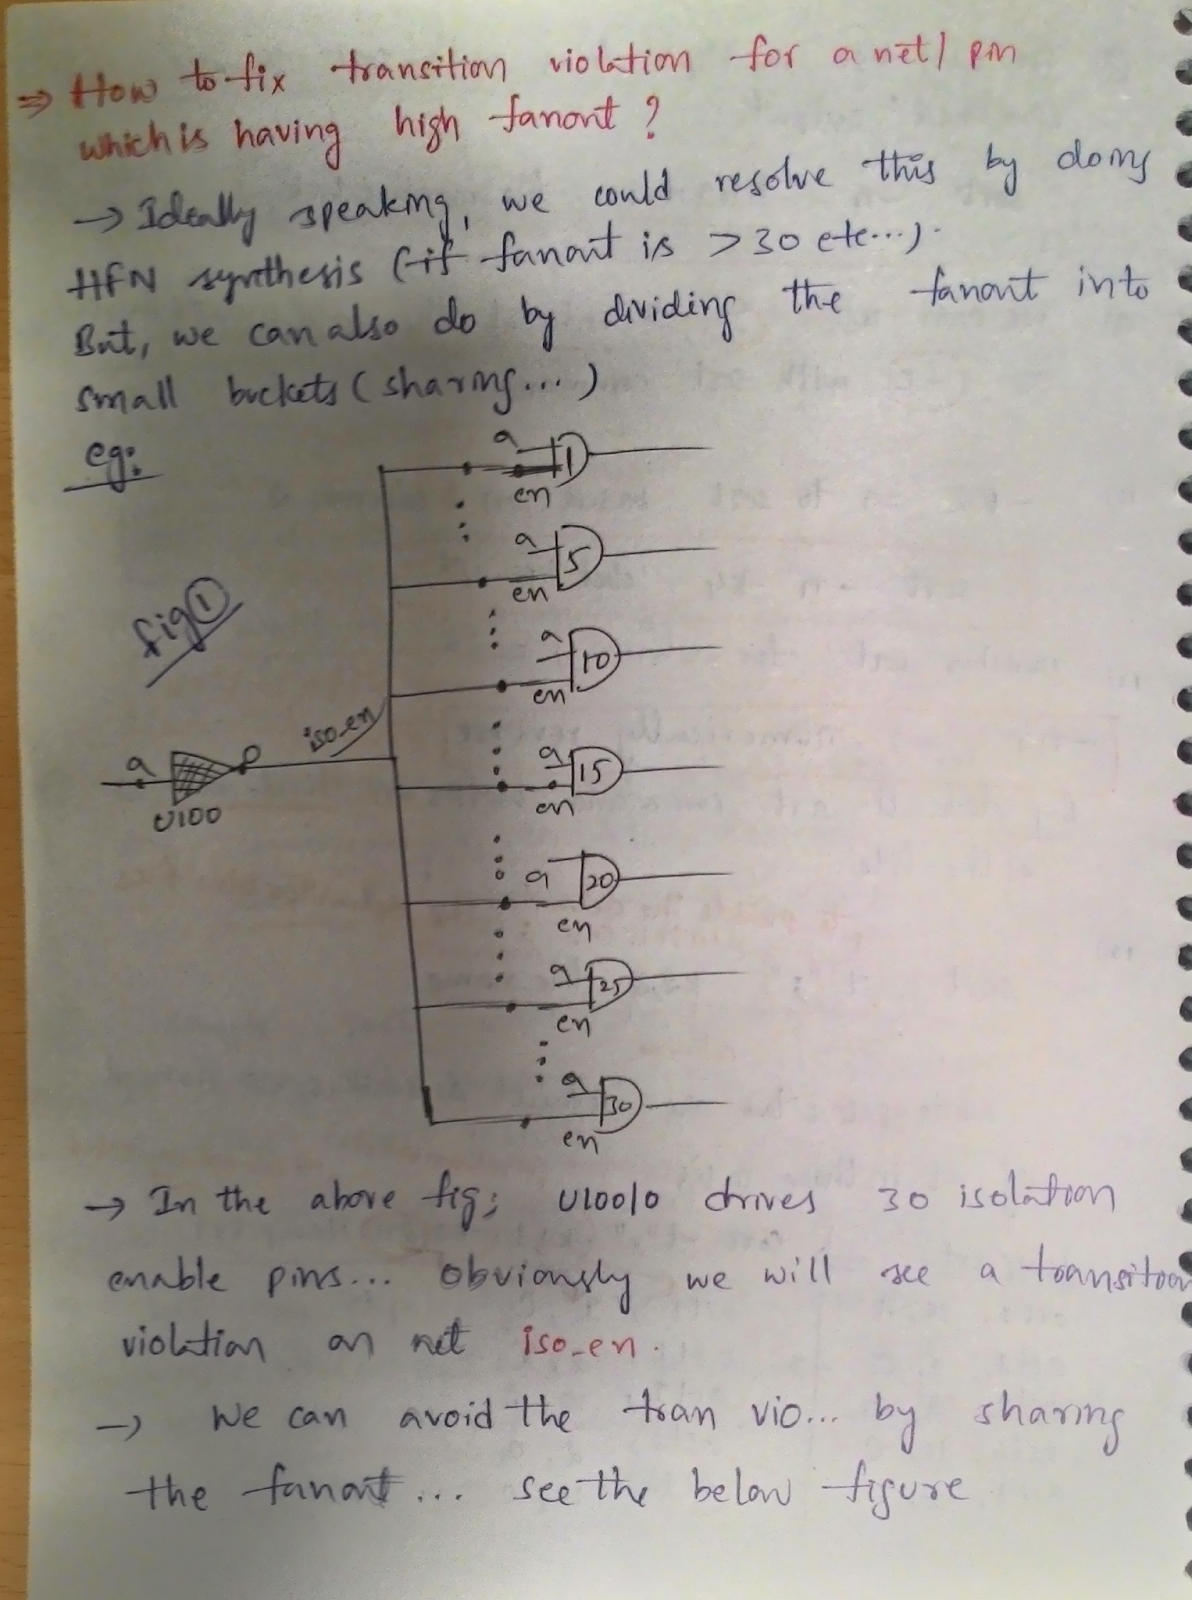 ⇒ How to fix transition violation for a net/pin
which is having high fanout ?
→ Ideally speaking, we could resolve this by doing
HFN synthesis (if fanout is >30 etc...).
But, we can also do by dividing the fanout into
small buckets (sharing...)
eg:
a
1
en
a
5
en
fig ①
a
10
en
iso_en
a
15
en
a
o
U100
a
20
en
a
25
en
a
30
en
→ In the above fig; U100/o drives 30 isolation
enable pins... obviously we will see a transition
violation on net iso_en.
→ We can avoid the tran vio... by sharing
the fanout... see the below figure